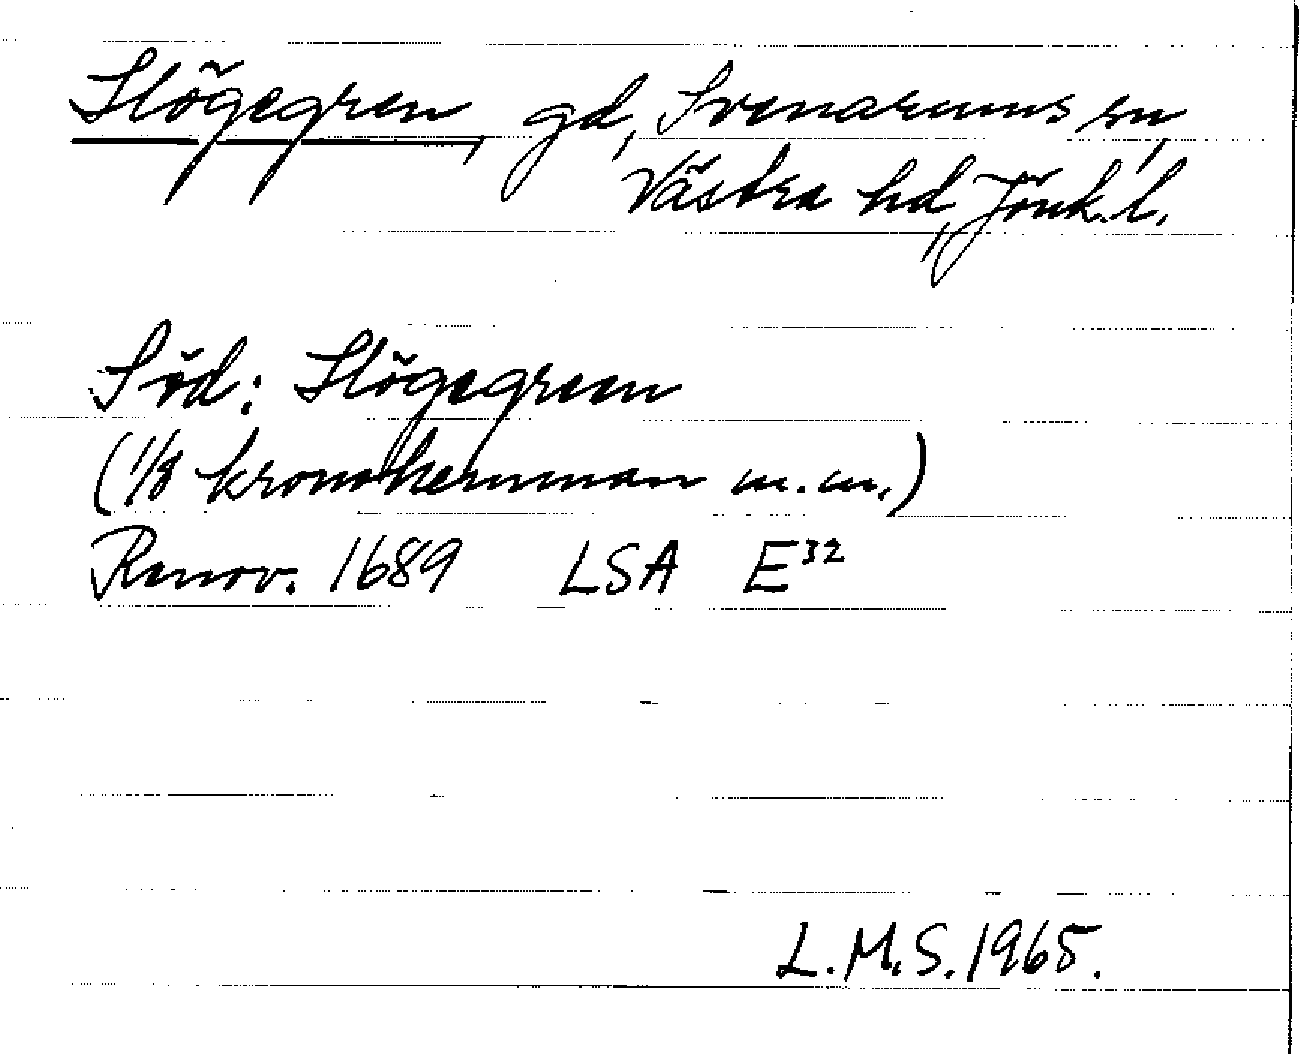 Slögegren, gd, Svenarums sn,
Västra hd, Jönk. l.
Död: Slögegreen
(1/8 kronohemman m.m.)
Renov. 1689 LSA E³²
L.M.S. 1965.